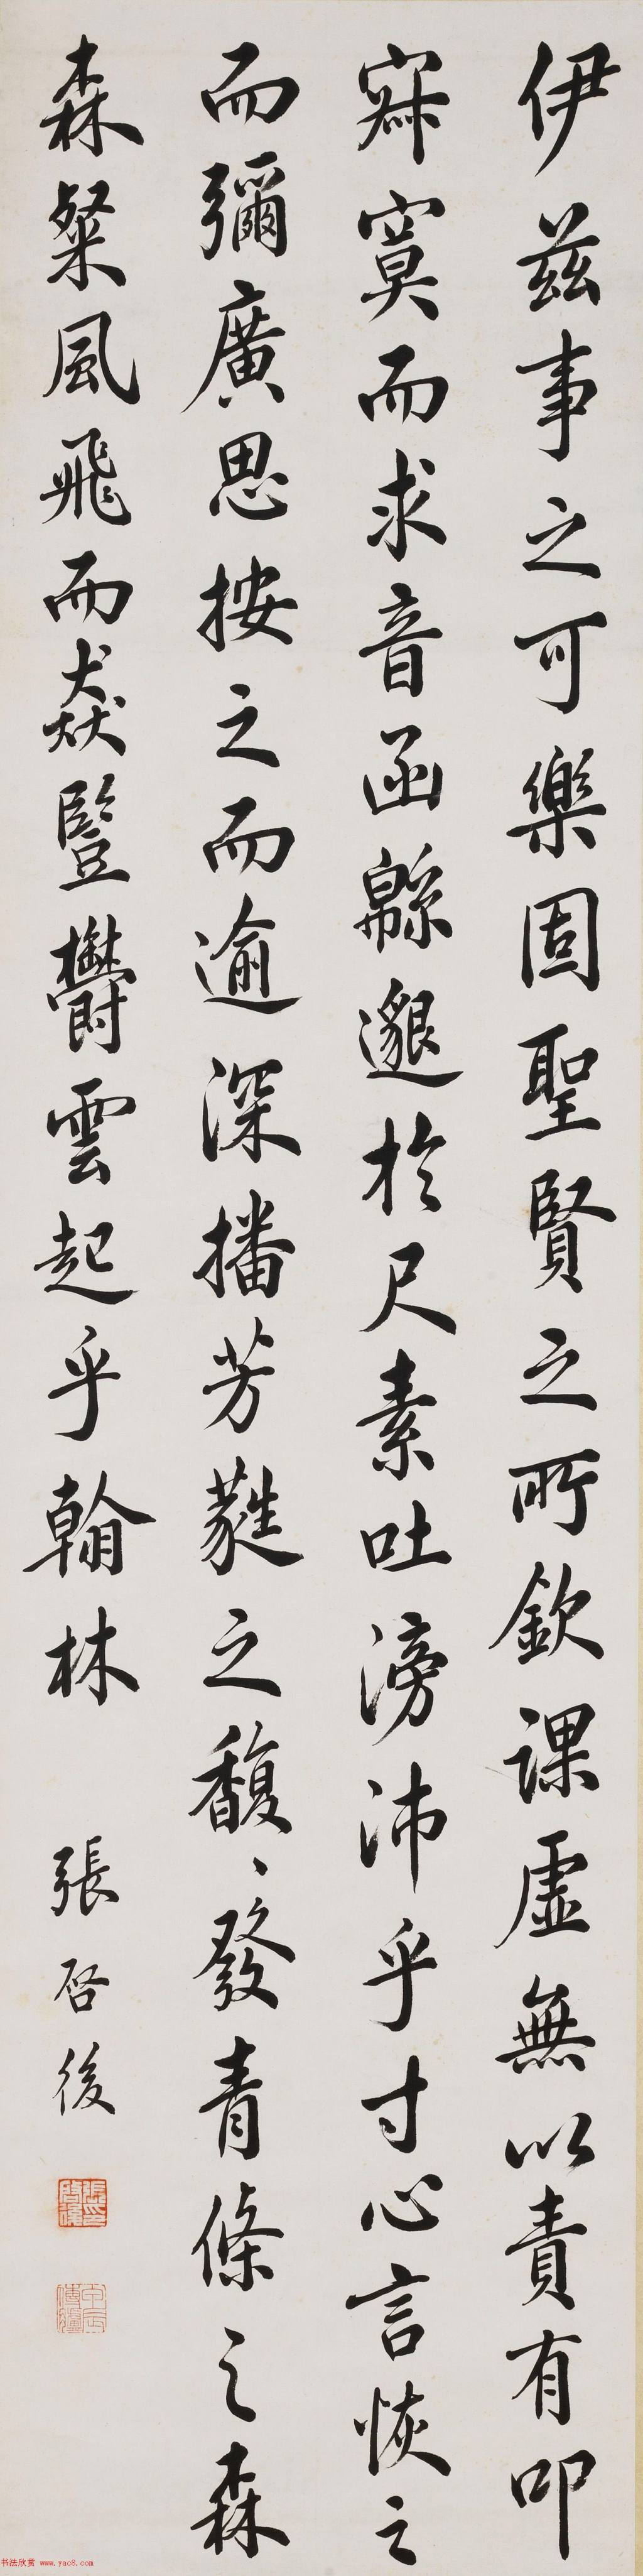 伊茲事之可樂固聖賢之所欽課虛無以責有叩
寂寞而求音函緜邈於尺素吐滂沛乎寸心言恢之
而彌廣思按之而逾深播芳蕤之馥、發青條之森
森粲風飛而猋豎鬱雲起乎翰林
張啓後
張啓後印
甲辰傳臚
书法欣赏 www.yac8.com